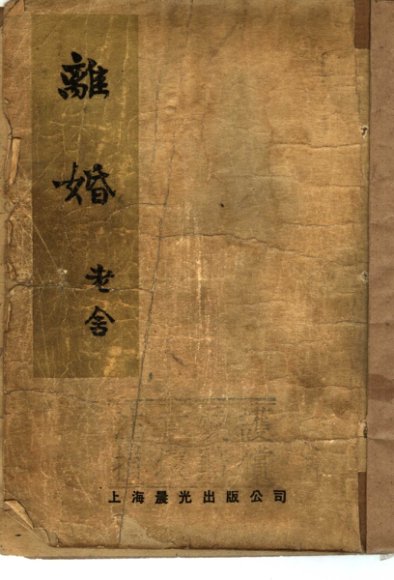 離婚
老舍
上海晨光出版公司